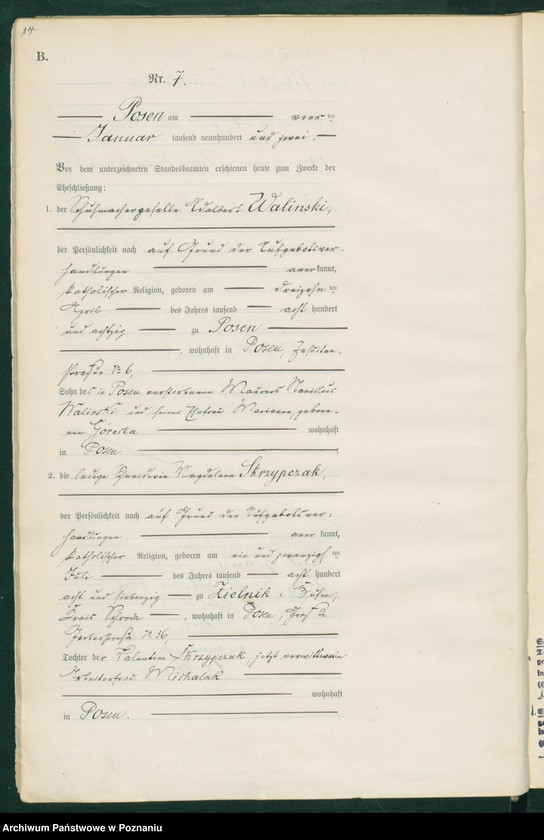 14
B.
Nr. 7.
Posen am vier ten
Januar tausend neunhundert und zwei.
Vor dem unterzeichneten Standesbeamten erschienen heute zum Zwecke der
Eheschließung:
1. der Schuhmachergeselle Adalbert Walinski,
der Persönlichkeit nach auf Grund der Aufgebotsver-
handlungen anerkannt,
katholischer Religion, geboren am dreizehn ten
April des Jahres tausend acht hundert
und achtzig zu Posen
, wohnhaft in Posen,
No 6,
Sohn des in Posen verstorbenen Maurers Stanislaus
Walinski und seiner Ehefrau Marianna gebore-
nen Górecka wohnhaft
in Posen
2. die ledige Schneiderin Magdalena Skrzypczak,
der Persönlichkeit nach auf Grund der Aufgebotsver-
handlungen anerkannt,
katholischer Religion, geboren am ein und zwanzigsten
Juli des Jahres tausend acht hundert
acht und siebenzig zu Zielnik,
Kreis Schroda, wohnhaft in Posen,
No 36,
Tochter der Skrzypczak, jetzt verwittwete
Arbeiterfrau Michalak
wohnhaft
in Posen.
Archiwum Państwowe w Poznaniu